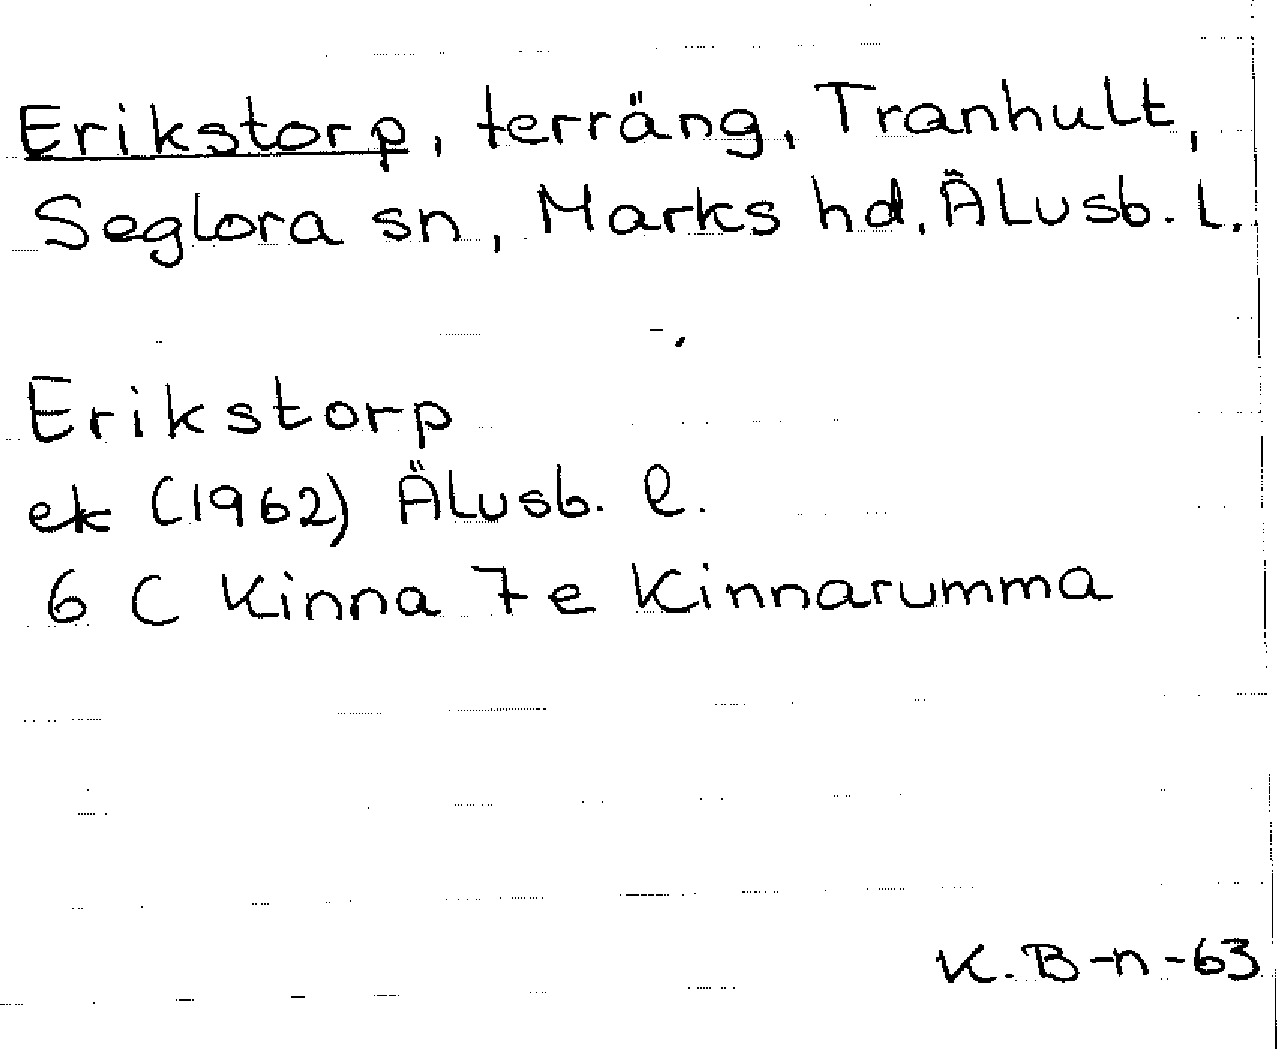 Erikstorp, terräng, Tranhult,
Seglora sn, Marks hd, Älvsb. l.
Erikstorp
ek (1962) Älvsb. l.
6 C Kinna 7e Kinnarumma
K. B-n -63